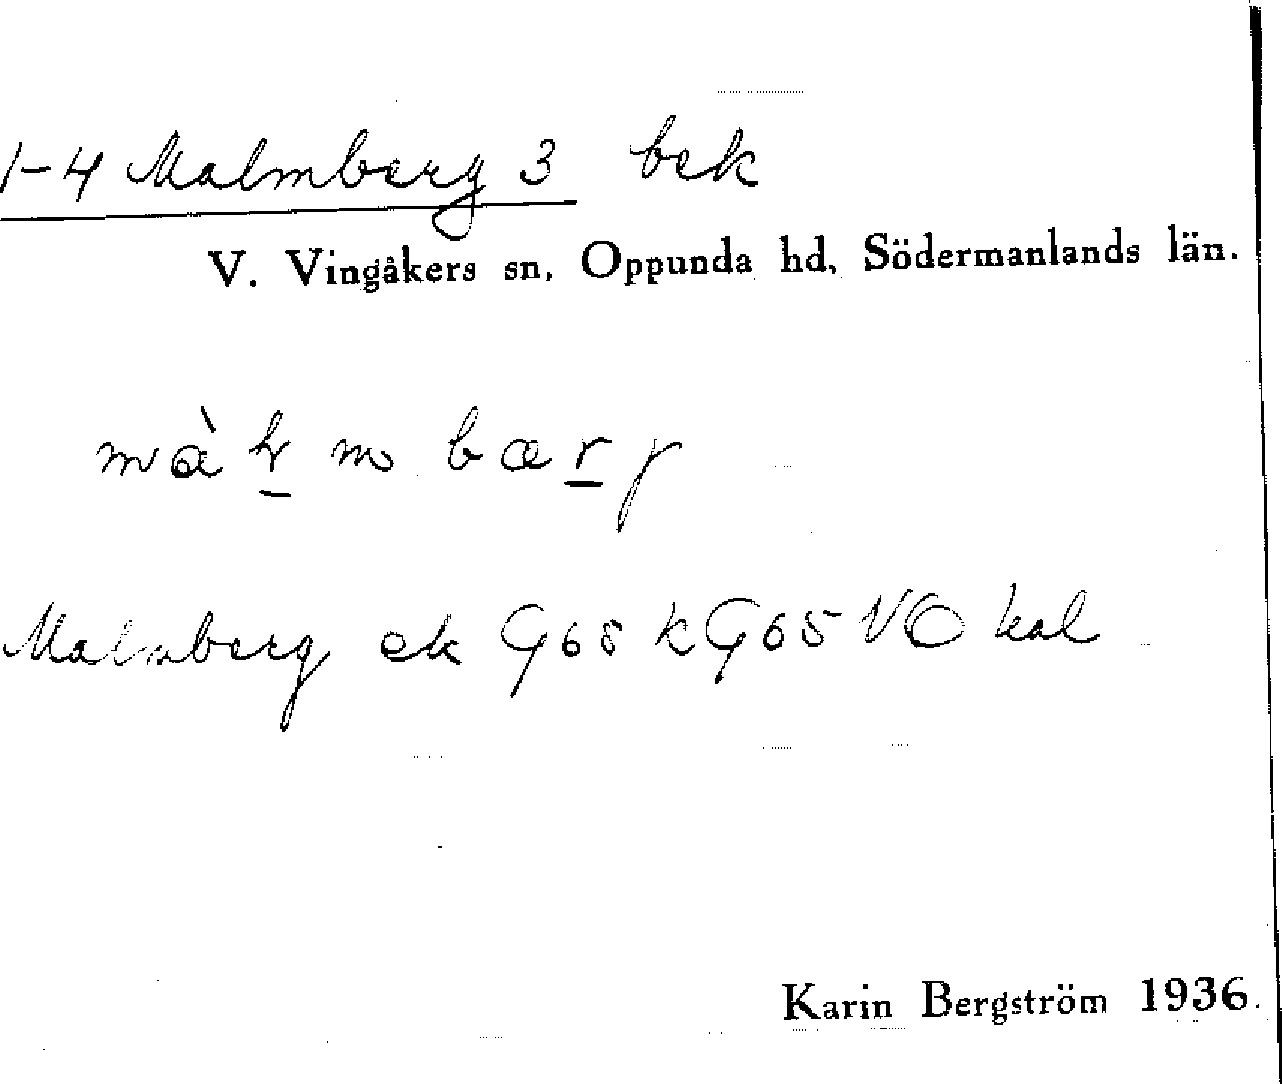 1-4 Malmberg 3 bek
V. Vingåkers sn, Oppunda hd, Södermanlands län.
m bær
Malmberg ek G65 k G65 VO kal
Karin Bergström 1936.